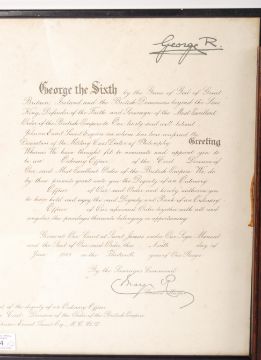 George R.
George the Sixth by the Grace of God of Great
Britain, Ireland and the British Dominions beyond the Seas
King, Defender of the Faith and Sovereign of the Most Excellent
Order of the British Empire to Our trusty and well beloved
Greeting
Whereas We have thought fit to nominate and appoint you to
be an Ordinary Officer of the Civil Division of
Our said Most Excellent Order of the British Empire We do
by these presents grant unto you the Dignity of an Ordinary
Officer of Our said Order and hereby authorise you
to have hold and enjoy the said Dignity and Rank of an Ordinary
Officer of Our aforesaid Order together with all and
singular the privileges thereunto belonging or appertaining
Given at Our Court at Saint James's under Our Sign Manual
and the Seal of Our said Order this Ninth day of
June 1949 in the Thirteenth year of Our Reign
By the Sovereign's Command
of the dignity of an Ordinary Officer
Civil Division of the Order of the British Empire